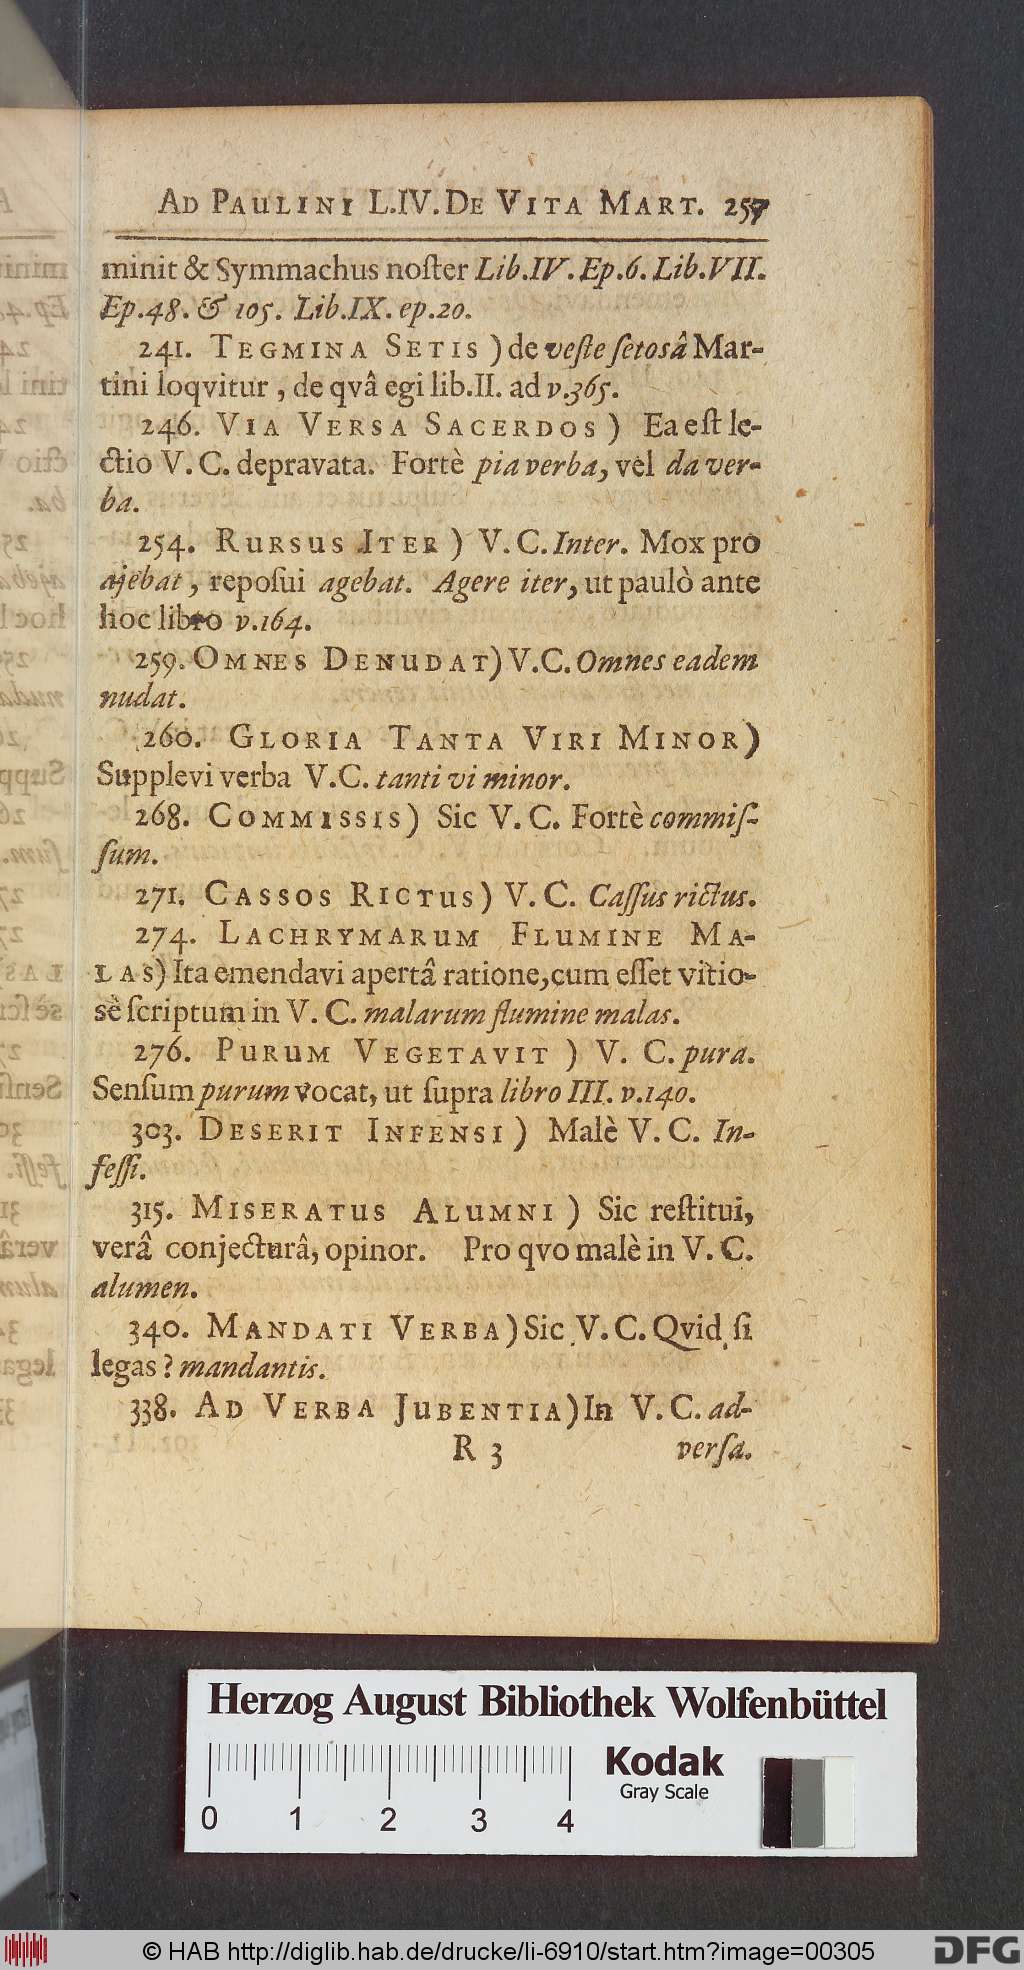 AD PAULINI L.IV. DE VITA MART. 257
minit & Symmachus noſter Lib.IV. Ep.6. Lib.VII.
Ep.48. & 105. Lib.IX. ep.20.
241. TEGMINA SETIS) de veſte ſetosâ Mar-
tini loqvitur, de qvâ egi lib.II. ad v.365.
246. VIA VERSA SACERDOS) Ea eſt le-
ctio V.C. depravata. Fortè pia verba, vel da ver-
ba.
254. RURSUS ITER) V.C. Inter. Mox pro
ajebat, repoſui agebat. Agere iter, ut paulò ante
hoc libro v.164.
259. OMNES DENUDAT) V.C. Omnes eadem
nudat.
260. GLORIA TANTA VIRI MINOR)
Supplevi verba V.C. tanti vi minor.
268. COMMISSIS) Sic V.C. Fortè commiſ-
ſum.
271. CASSOS RICTUS) V.C. Caſſus rictus.
274. LACHRYMARUM FLUMINE MA-
LAS) Ita emendavi apertâ ratione, cum eſſet vitio-
sè ſcriptum in V.C. malarum flumine malas.
276. PURUM VEGETAVIT) V. C. pura.
Senſum purum vocat, ut ſupra libro III. v.140.
303. DESERIT INFENSI) Malè V.C. In-
feſſi.
315. MISERATUS ALUMNI) Sic reſtitui,
verâ conjecturâ, opinor. Pro qvo malè in V.C.
alumen.
340. MANDATI VERBA) Sic V.C. Qvid ſi
legas? mandantis.
338. AD VERBA JUBENTIA) In V.C. ad-
R 3 verſa.
Herzog August Bibliothek Wolfenbüttel
Kodak
Gray Scale
0 1 2 3 4
© HAB http://diglib.hab.de/drucke/li-6910/start.htm?image=00305
DFG